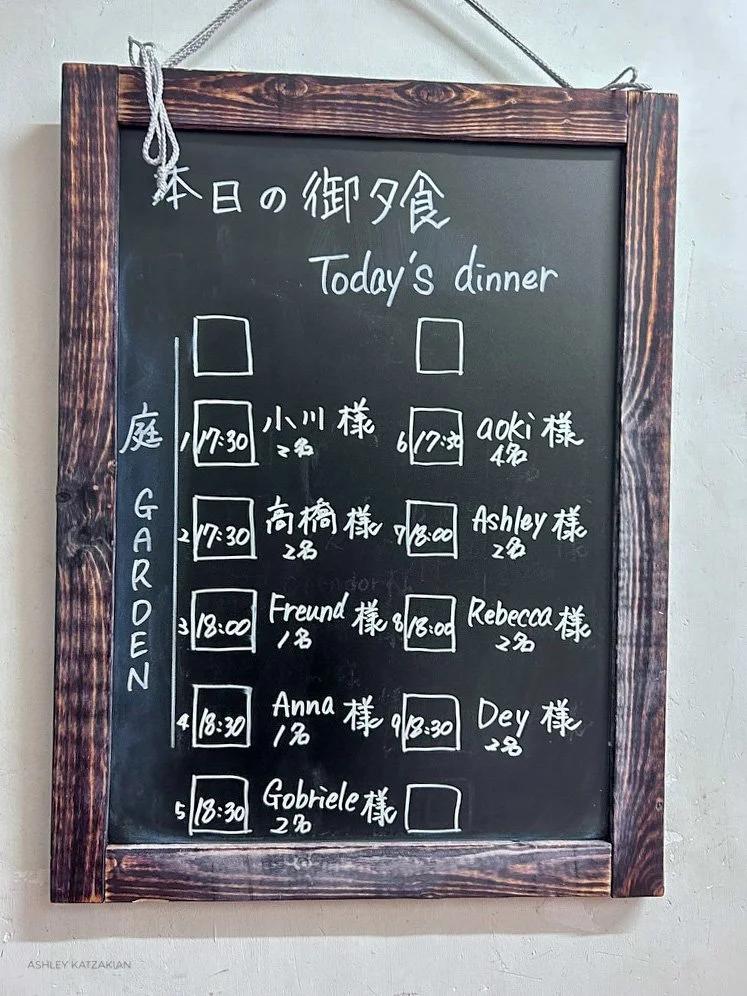 本日の御夕食
Today's dinner
庭
GARDEN
1 17:30 小川 様
2名
2 17:30 高橋 様
2名
3 18:00 Freund 様
1名
4 18:30 Anna 様
1名
5 18:30 Gobriele 様
2名
6 17:30 aoki 様
4名
7 18:00 Ashley 様
2名
8 18:00 Rebecca 様
2名
9 18:30 Dey 様
2名
ASHLEY KATZAKIAN